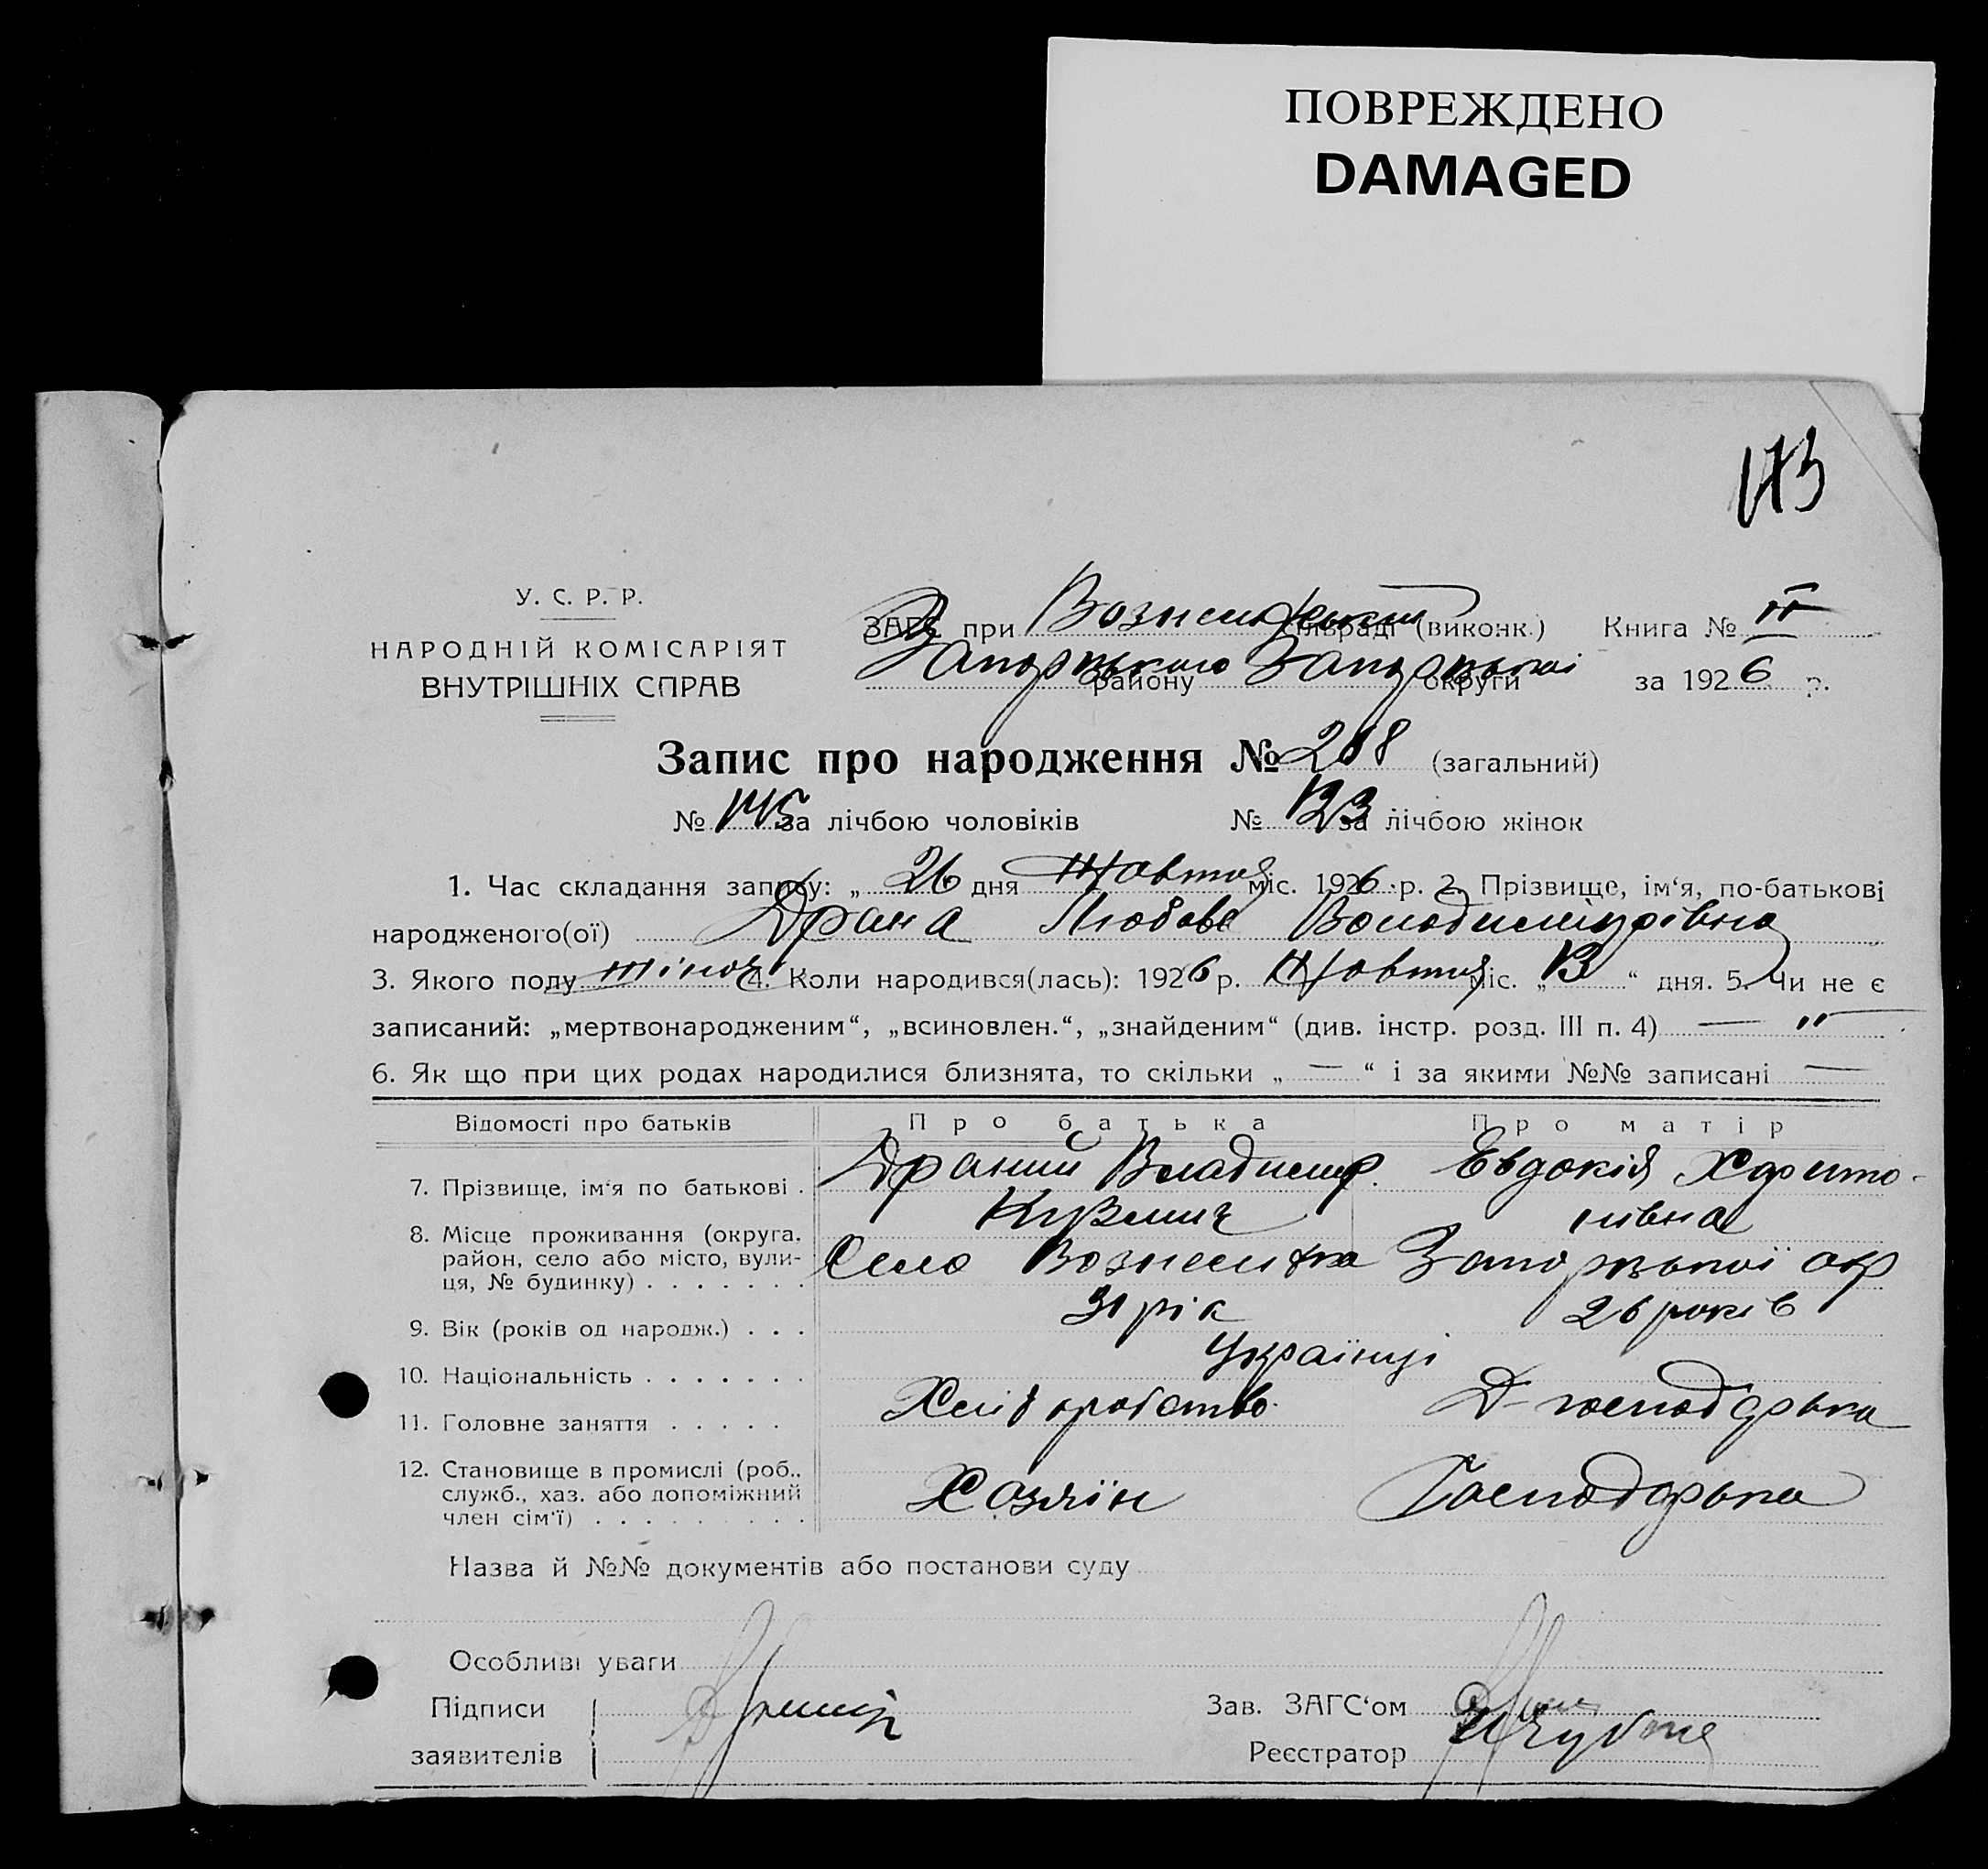 ПОВРЕЖДЕНО
DAMAGED
173
У. С. Р. Р.
НАРОДНІЙ КОМІСАРІЯТ
ВНУТРІШНІХ СПРАВ
ЗАГС при Вознесенській сільраді (виконк.) Книга № II
Запорізького району Запорізької округи за 1926 р.
Запис про народження № 268 (загальний)
№ 145 за лічбою чоловіків № 123 за лічбою жінок
1. Час складання запису: „ 26 дня Жовтня міс. 1926 р. 2. Прізвище, ім‘я, по-батькові
народженого(ої) Драна Любовь Володимирівна
3. Якого полу жіноч 4. Коли народився(лась): 1926 р. Жовтня міс. „ 13 “ дня. 5. Чи не є
записаний: „мертвонародженим“, „всиновлен.“, „знайденим“ (див. інстр. розд. III п. 4) — " —
6. Як що при цих родах народилися близнята, то скільки „ — “ і за якими №№ записані —
Відомості про батьків Про батька Про матір
7. Прізвище, ім‘я по батькові . Драний Владимир Евдокія Харито-
Кузмич нівна
8. Місце проживання (округа, район, село або місто, вули-ця, № будинку) . . . . . . . Село Вознесенка Запорізької окр
9. Вік (років од народж.) . . . 31 рік 26 років
10. Національність . . . . . . . Українці
11. Головне заняття . . . . . Хліборобство Д-господарька
12. Становище в промислі (роб., служб., хаз. або допоміжний член сім‘ї) . . . . . . . . . Хозяїн Господарька
Назва й №№ документів або постанови суду
Особливі уваги
Підписи
заявителів
Зав. ЗАГС‘ом
Реєстратор